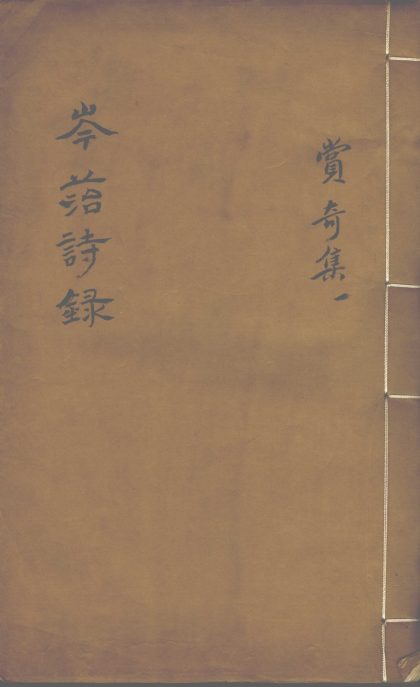 賞奇集一
岑菭詩録